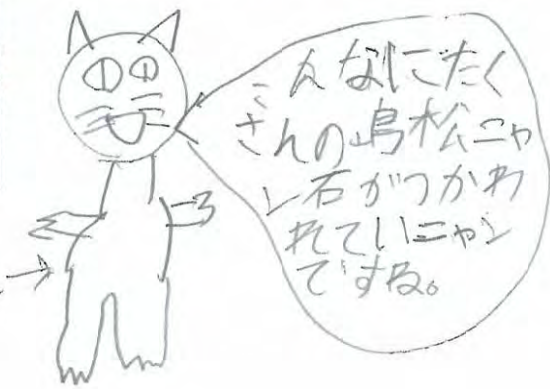 こんなにたく
さんの島松ニャ
ン石がつかわ
れていニャン
ですね。